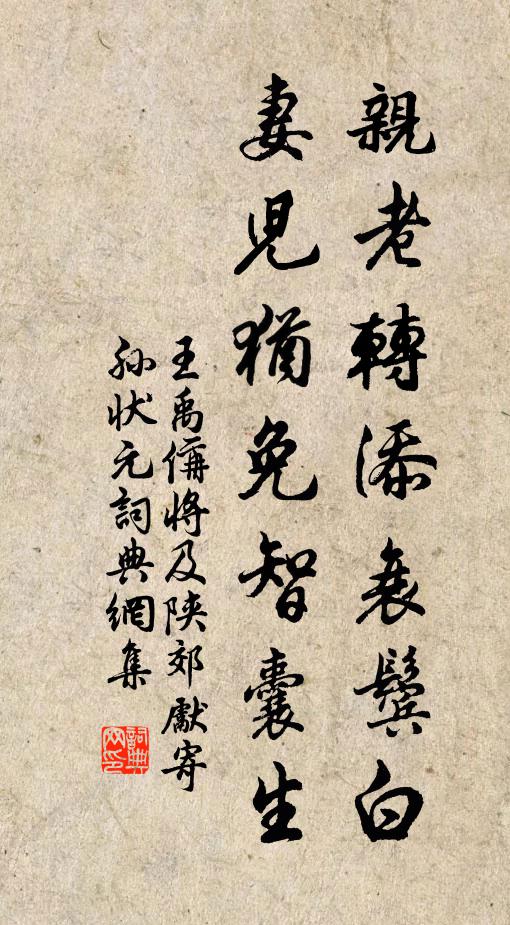 親老轉添衰鬢白
妻兒猶免智囊生
王禹偁將及陝郊獻寄
孫狀元詞典網集
詞典
網印